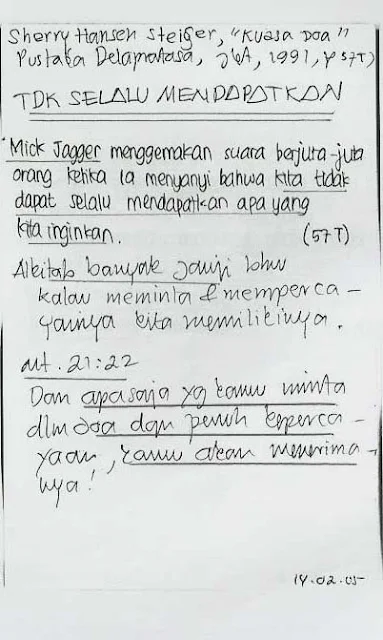 Sherry Hansen Steiger, "Kuasa Doa"
Pustaka Delapratasa, Jkt, 1991, p 57T)
TDK SELALU MENDAPATKAN
"Mick Jagger menggemakan suara berjuta-juta
orang ketika ia menyanyi bahwa kita tidak
dapat selalu mendapatkan apa yang
kita inginkan. (57T)
Alkitab banyak janji bhw
kalau meminta & memperca-
yainya kita memilikinya.
Mt. 21:22
Dan apa saja yg kamu minta
dlm doa dgn penuh keperca-
yaan, kamu akan menerima-
nya!
14.02.05